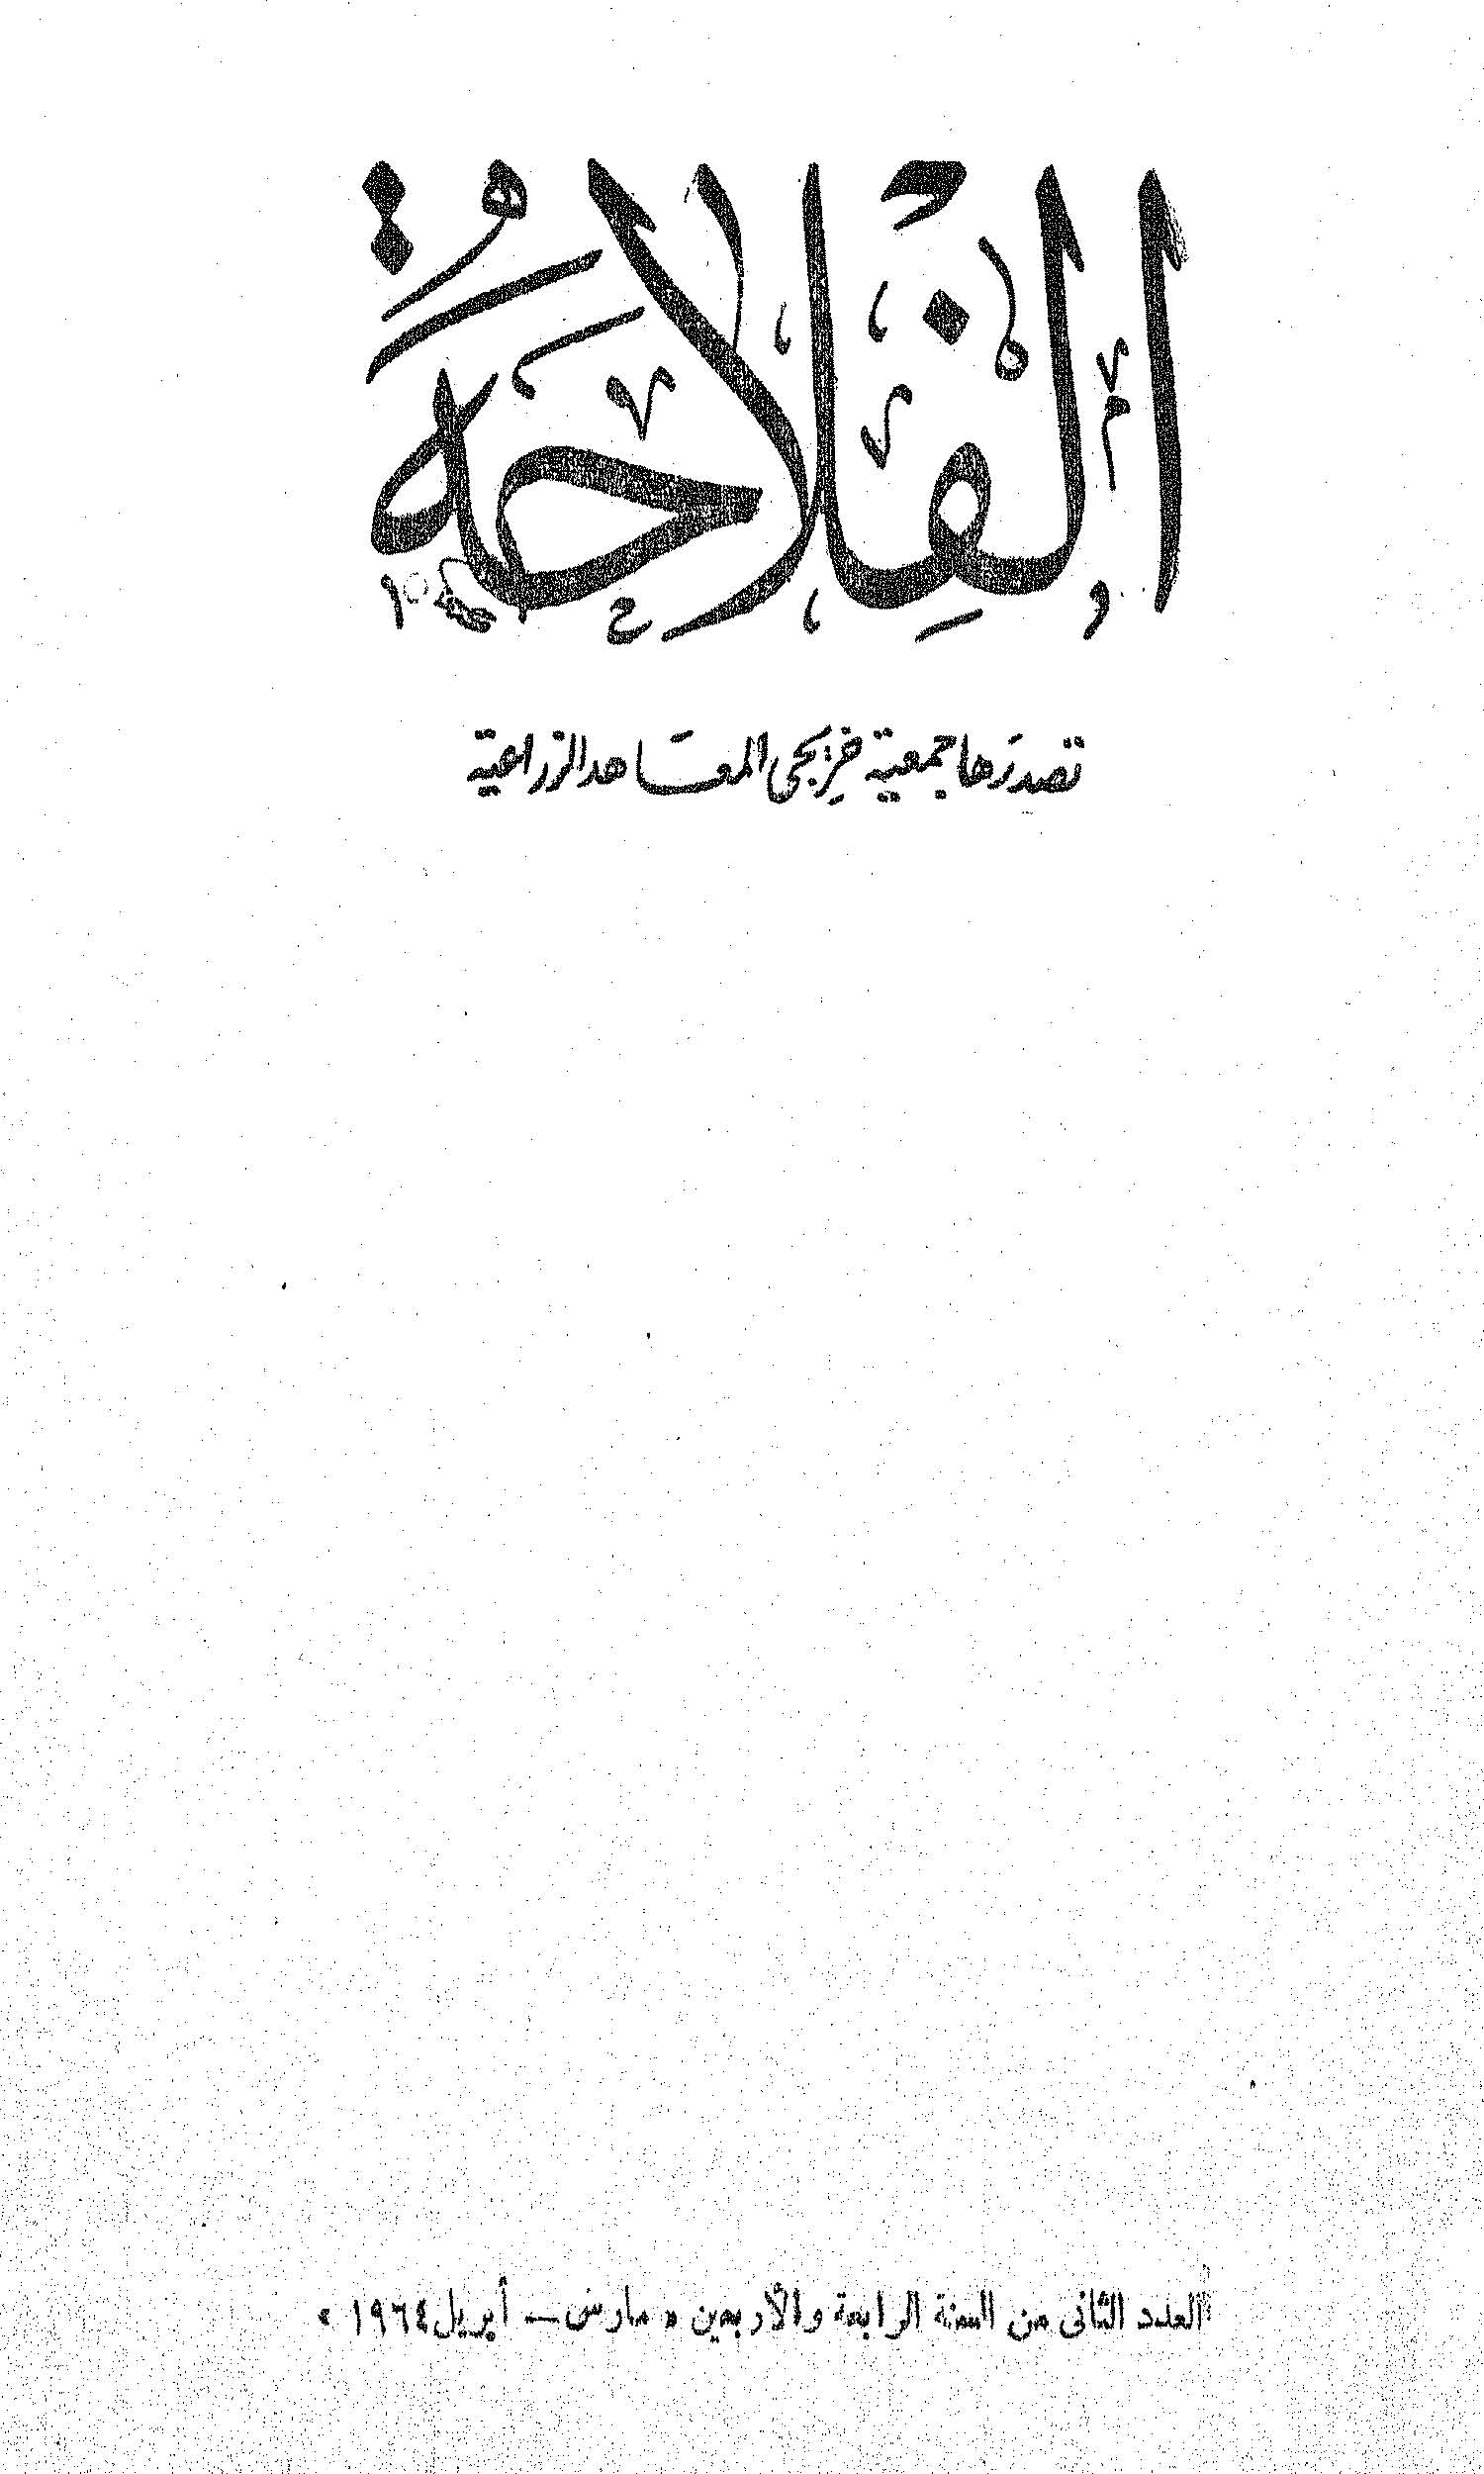 الفلاحة
تصدرها جمعية خريجى المعاهد الزراعية
العدد الثانى من السنة الرابعة والأربعين « مارس — أبريل ١٩٦٤ »